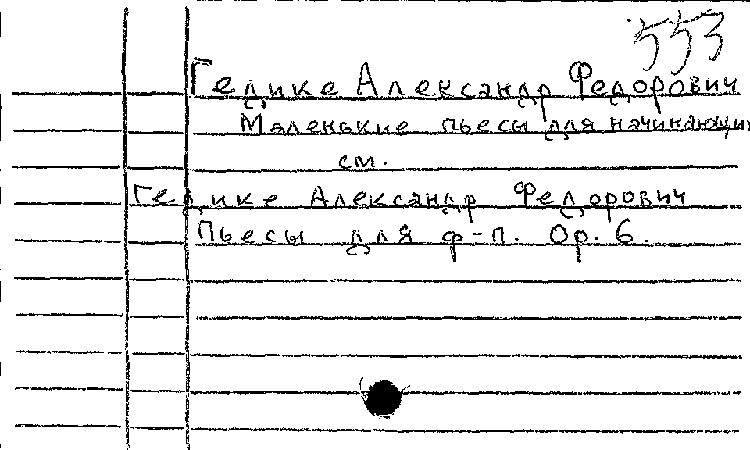 553
Гедике Александр Федорович
Маленькие пьесы для начинающих
см.
Гедике Александр Федорович
Пьесы для ф-п. Ор. 6.